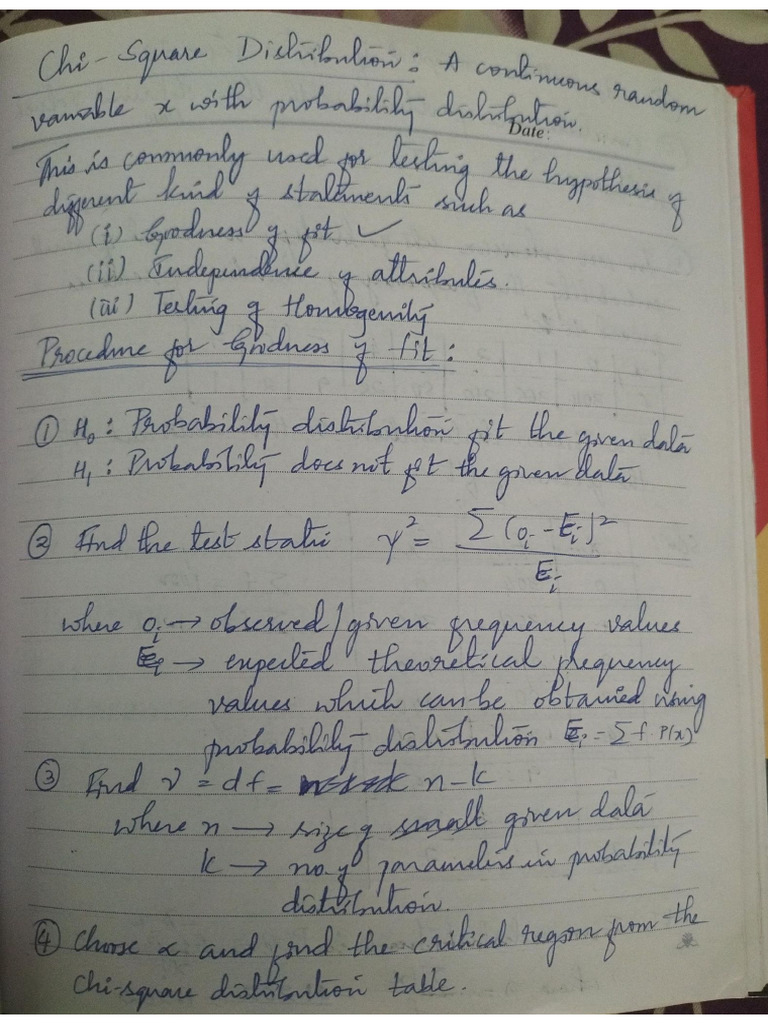 Chi-Square Distribution: A continuous random
variable x with probability distribution.
Date:
This is commonly used for testing the hypothesis of
different kind of statements such as
(i) Goodness of fit ✓
(ii) Independence of attributes.
(iii) Testing of Homogenity
Procedure for Goodness of fit:
① H₀: Probability distribution fit the given data
H₁: Probability does not fit the given data
② Find the test stati γ² = Σ(oᵢ-Eᵢ)² / Eᵢ
where oᵢ → observed/given frequency values
Eᵢ → expected theoretical frequency
values which can be obtained using
probability distribution Eᵢ = Σf·P(x)
③ Find ν = df = n-k
where n → size of given data
k → no. of parameters in probability
distribution.
④ Choose α and find the critical region from the
chi-square distribution table.